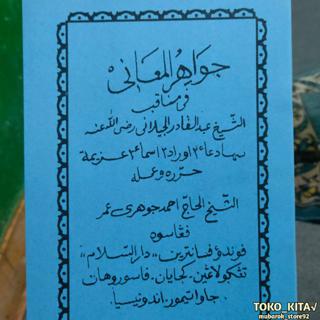 جواهر المعاني
في مناقب
الشيخ عبدالقادر الجيلاني رضي الله عنه
دعاء٢ اوراد٢ اسماء٢ عزيمة
حرره وعمله
الشيخ الحاج احمد جوهري عمر
فڠاسوه
فوندوق فسانترين "دار السلام"
تڠكولاڠين. كجايان. فاسوروهان
جاوا تيمور. اندونيسيا.
TOKO_KITA√
mubarok_store92